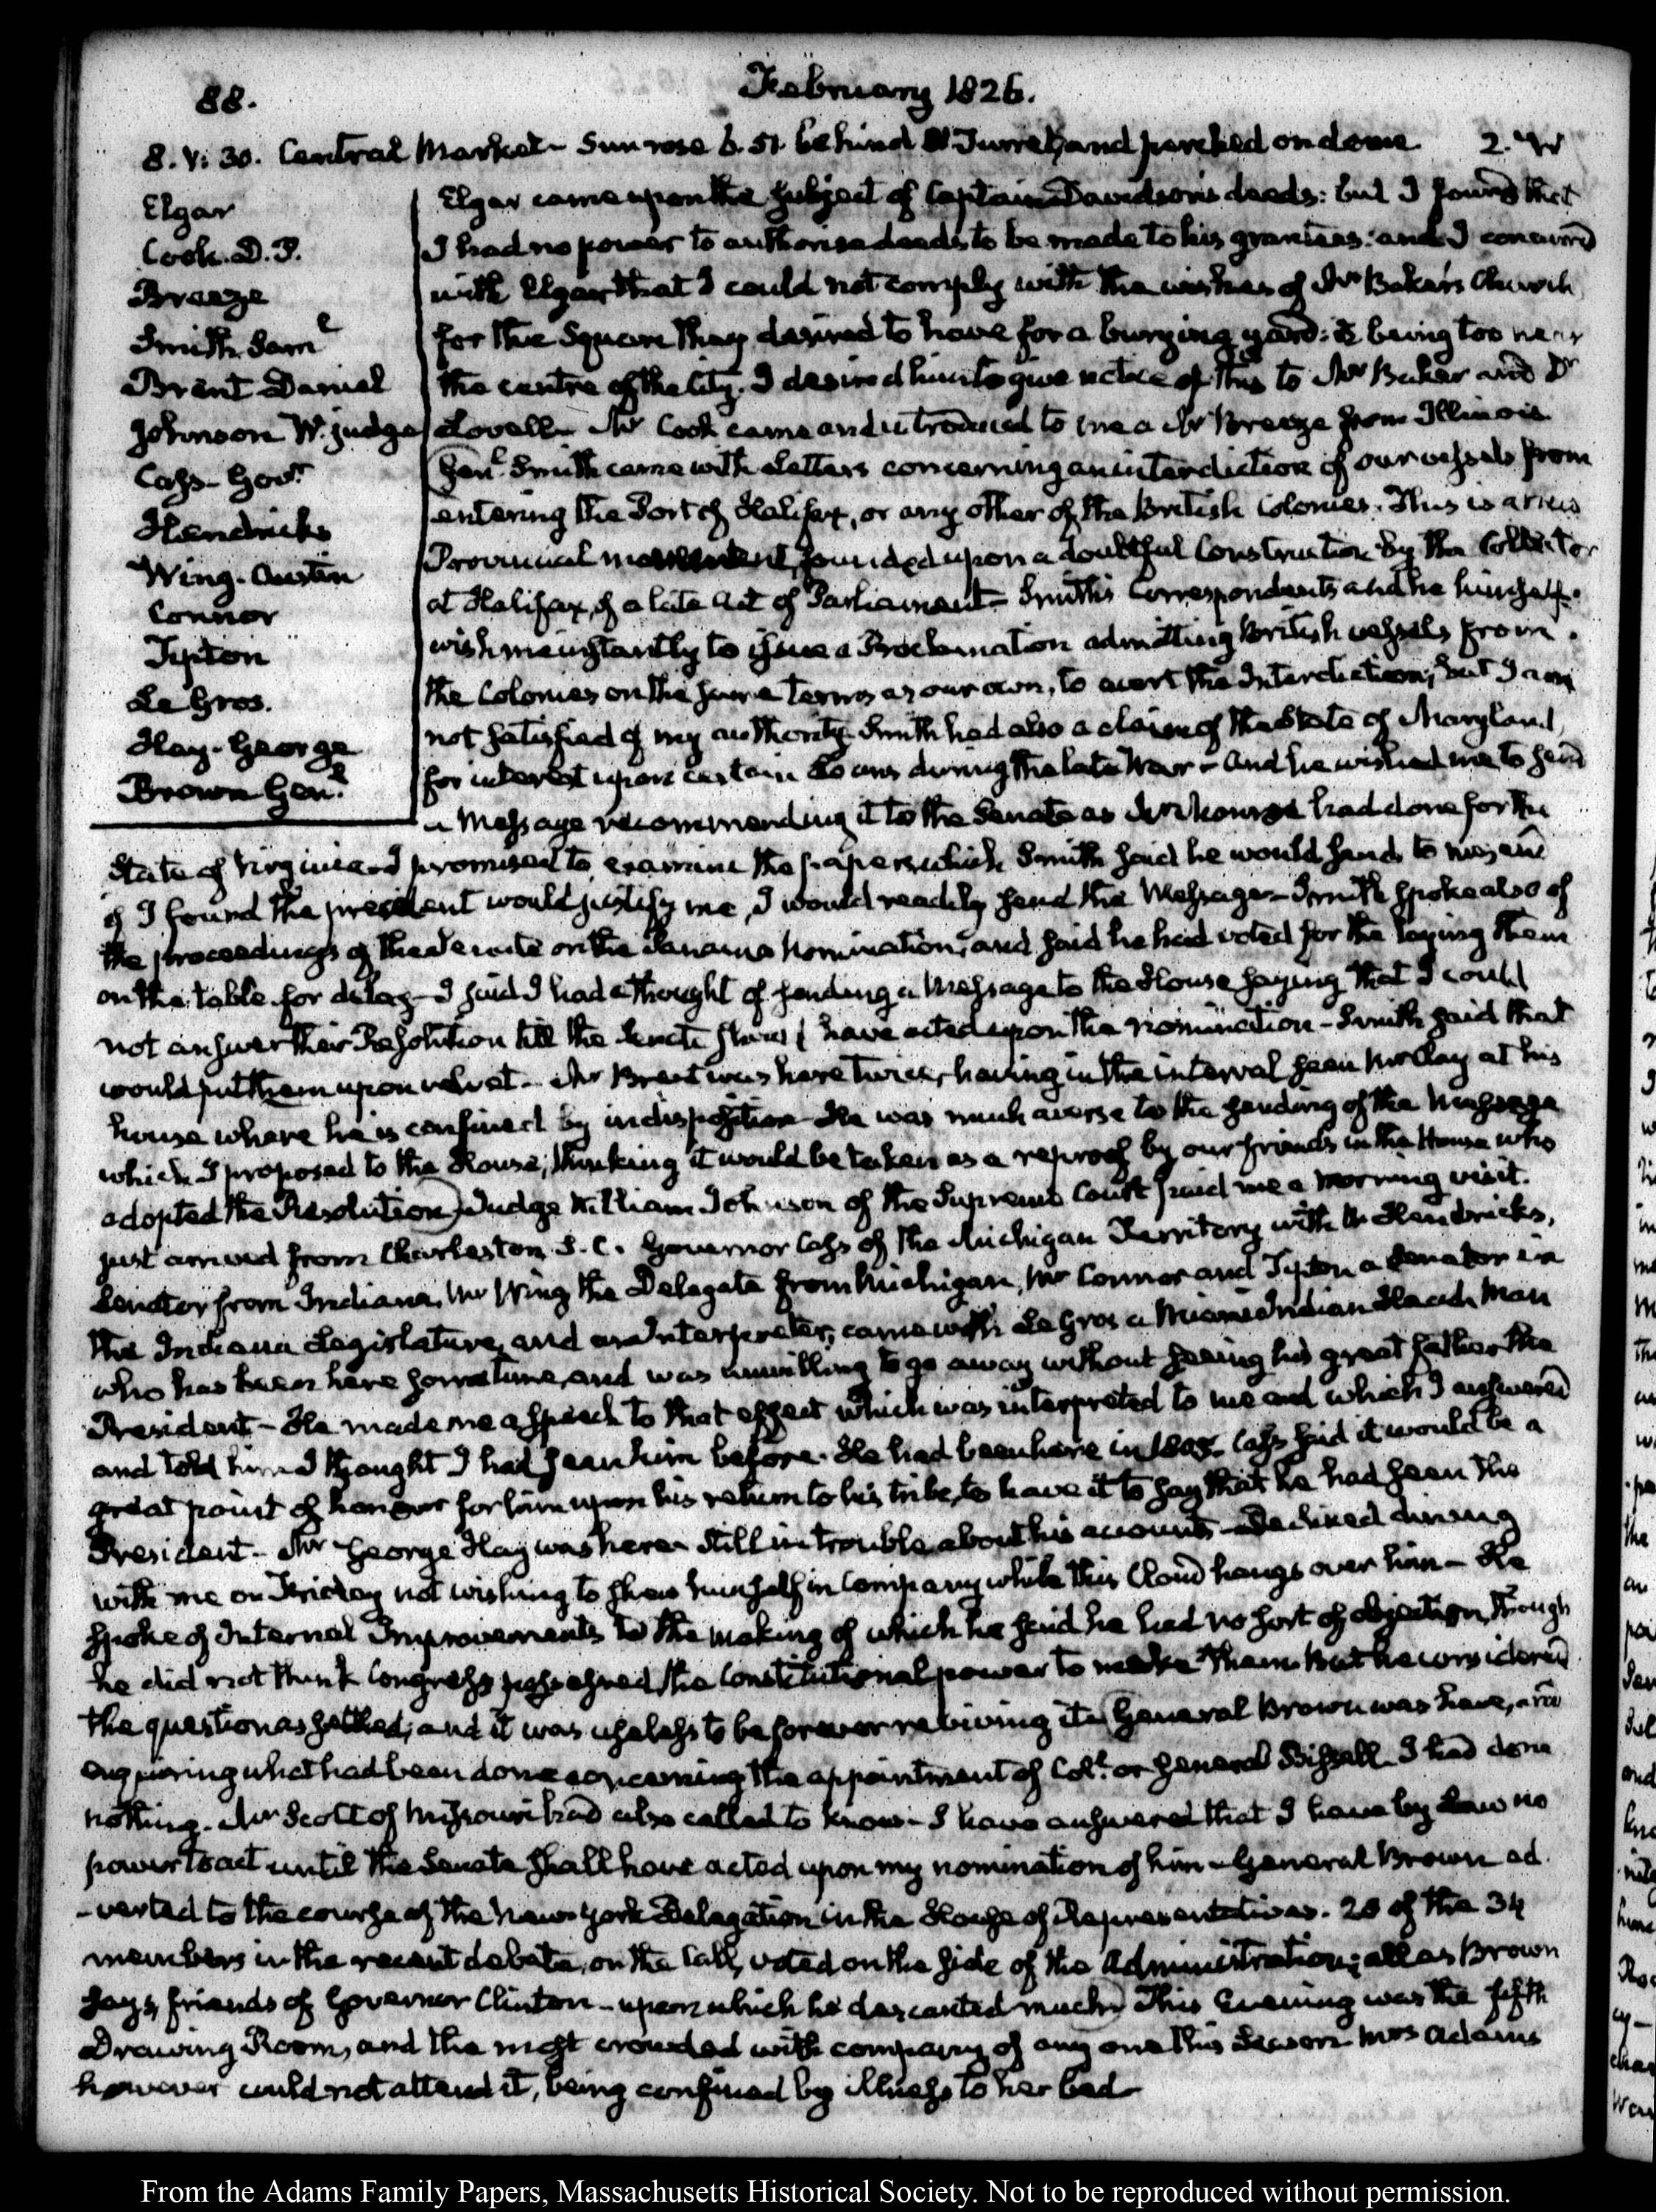 88.
February 1826.
8. V: 30. Central Market - Sun rose 6.51. behind Turret, and perched on dome. 2. IV
Elgar
Cook. D. P.
Breeze
Smith Saml
Brent Daniel
Johnson W. judge
Cass- Govr.
Hendricks
Wing. Austin
Connor
Tipton
Le Gros.
Hay- George
Brown Genl.
Elgar came upon the subject of Captain Davidson's deeds: but I found that
I had no power to authorise deeds to be made to his grantees: and I concurred
with Elgar that I could not comply with the wishes of Mr Baker's Church
for the Square they desired to have for a burying yard: it being too near
the centre of the City. I desired him to give notice of this to Mr Baker and Dr
Lovell- Mr Cook came and introduced to me a Mr Breeze from Illinois
Genl. Smith came with Letters concerning an interdiction of our vessels from
entering the Port of Halifax, or any other of the British Colonies. This is a
Provincial movement, founded upon a doubtful Construction by the Collector
at Halifax, of a late Act of Parliament- Smith's Correspondents and he himself
wish me instantly to issue a Proclamation admitting British vessels from
the Colonies on the same terms as our own, to avert the Interdiction; but I am
not satisfied of my authority- Smith had also a claim of the State of Maryland,
for interest upon certain Loans during the late War- and he wished me to send
a Message recommending it to the Senate as Mr Monroe had done for the
State of Virginia- I promised to examine the papers which Smith said he would send to me, and
if I found the precedent would justify me, I would readily send the Message- Smith spoke also of
the proceedings of the Senate on the Panama Nomination, and said he had voted for the laying them
on the table for delay- I said I had a thought of sending a Message to the House saying that I could
not answer their Resolution till the Senate should have acted upon the nomination- Smith said that
would put them upon velvet- Mr Brent was here twice, having in the interval seen Mr Clay at his
house where he is confined by indisposition- He was much averse to the sending of the Message
which I proposed to the House, thinking it would be taken as a reproof by our friends in the House who
adopted the Resolution) Judge William Johnson of the Supreme Court paid me a morning visit.
just arrived from Charleston S. C. Governor Cass of the Michigan Territory with Mr Hendricks,
Senator from Indiana, Mr Wing the Delegate from Michigan, Mr Connor and Tipton a Senator in
the Indiana Legislature, and an Interpreter, came with Le Gros a Miami Indian Head Man
who has been here sometime, and was unwilling to go away without seeing his great father the
President- He made me a speech to that effect which was interpreted to me and which I answered
and told him I thought I had seen him before. He had been here in 1805. Cass said it would be a
great point of honour for him upon his return to his tribe, to have it to say that he had seen the
President- Mr George Hay was here- still in trouble about his accounts- Declined dining
with me on Friday not wishing to shew himself in Company while this Cloud hangs over him- He
spoke of Internal Improvements to the making of which he said he had no sort of objection, though
he did not think Congress possessed the Constitutional power to make them. But he considered
the question as settled; and it was useless to be forever reviving it- (General Brown was here, and
enquiring what had been done concerning the appointment of Colt. or General Bissell- I had done
nothing. Mr Scott of Missouri had also called to know- I have answered that I have by Law no
power to act until the Senate shall have acted upon my nomination of him- General Brown ad
-verted to the course of the New-York Delegation in the House of Representatives. 28 of the 34
members in the recent debate, on the Call, voted on the side of the Administration; all as Brown
says, friends of Governor Clinton- upon which he descanted much) This Evening was the fifth
Drawing Room, and the most crowded with company of any one this Season- Mrs Adams
however could not attend it, being confined by illness to her bed-
From the Adams Family Papers, Massachusetts Historical Society. Not to be reproduced without permission.